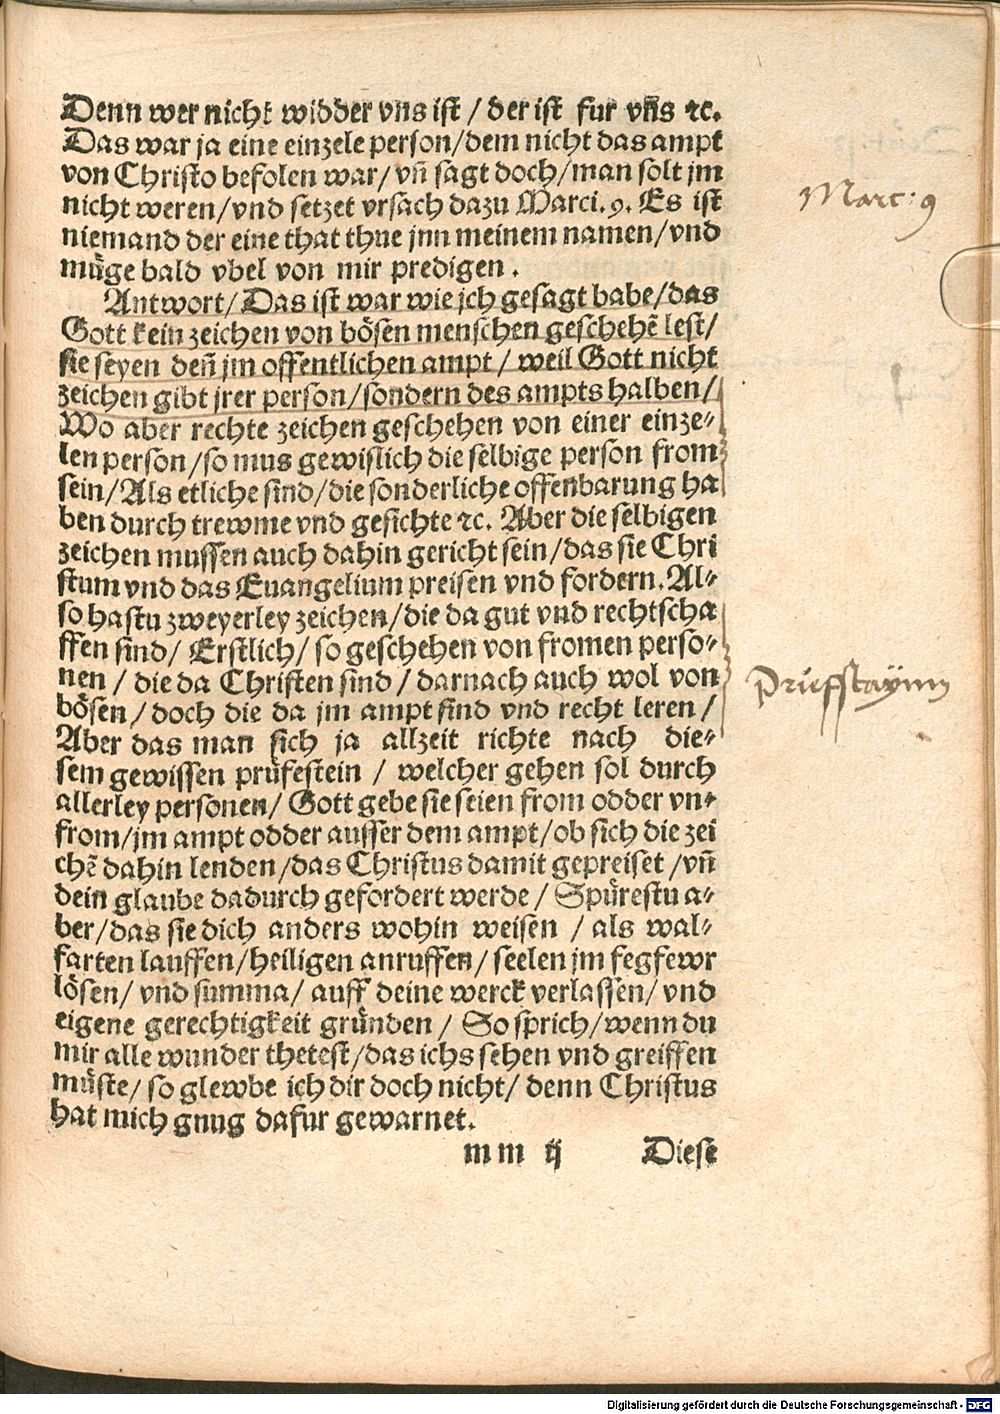 Denn wer nicht widder vns ist / der ist fur vn̄s ꝛc.
Das war ja eine einzele person/dem nicht das ampt
von Christo befolen war/ vn̄ sagt doch/man solt jm
nicht weren/vnd setzet vrsach dazu Marci. 9. Es ist
niemand der eine that thue jnn meinem namen/vnd
müge bald vbel von mir predigen.
Marc: 9
Antwort/Das ist war wie jch gesagt habe/das
Gott kein zeichen von bösen menschen geschehē lest/
sie seyen den̄ jm offentlichen ampt / weil Gott nicht
zeichen gibt jrer person/sondern des ampts halben/
Wo aber rechte zeichen geschehen von einer einze⸗
len person/so mus gewislich die selbige person from
sein/Als etliche sind/die sonderliche offenbarung ha
ben durch trewme vnd gesichte ꝛc. Aber die selbigen
zeichen mussen auch dahin gericht sein/das sie Chri
stum vnd das Euangelium preisen vnd fordern. Al⸗
so hastu zweyerley zeichen/die da gut vnd rechtscha
ffen sind/ Erstlich/ so geschehen von fromen perso⸗
nen / die da Christen sind / darnach auch wol von
bösen / doch die da jm ampt sind vnd recht leren /
Prüeffstayn
Aber das man sich ja allzeit richte nach die⸗
sem gewissen prüfestein / welcher gehen sol durch
allerley personen/ Gott gebe sie seien from odder vn⸗
from/jm ampt odder ausser dem ampt/ob sich die zei
chē dahin lenden/das Christus damit gepreiset /vn̄
dein glaube dadurch gefordert werde / Spürestu a⸗
ber/das sie dich anders wohin weisen / als wal⸗
farten lauffen/heiligen anruffen/ seelen jm fegfewr
lösen/ vnd summa/ auff deine werck verlassen/ vnd
eigene gerechtigkeit gründen / So sprich/wenn du
mir alle wunder thetest/das ichs sehen vnd greiffen
müste/ so glewbe ich dir doch nicht/ denn Christus
hat mich gnug dafur gewarnet.
mm ij Diese
Digitalisierung gefördert durch die Deutsche Forschungsgemeinschaft - DFG